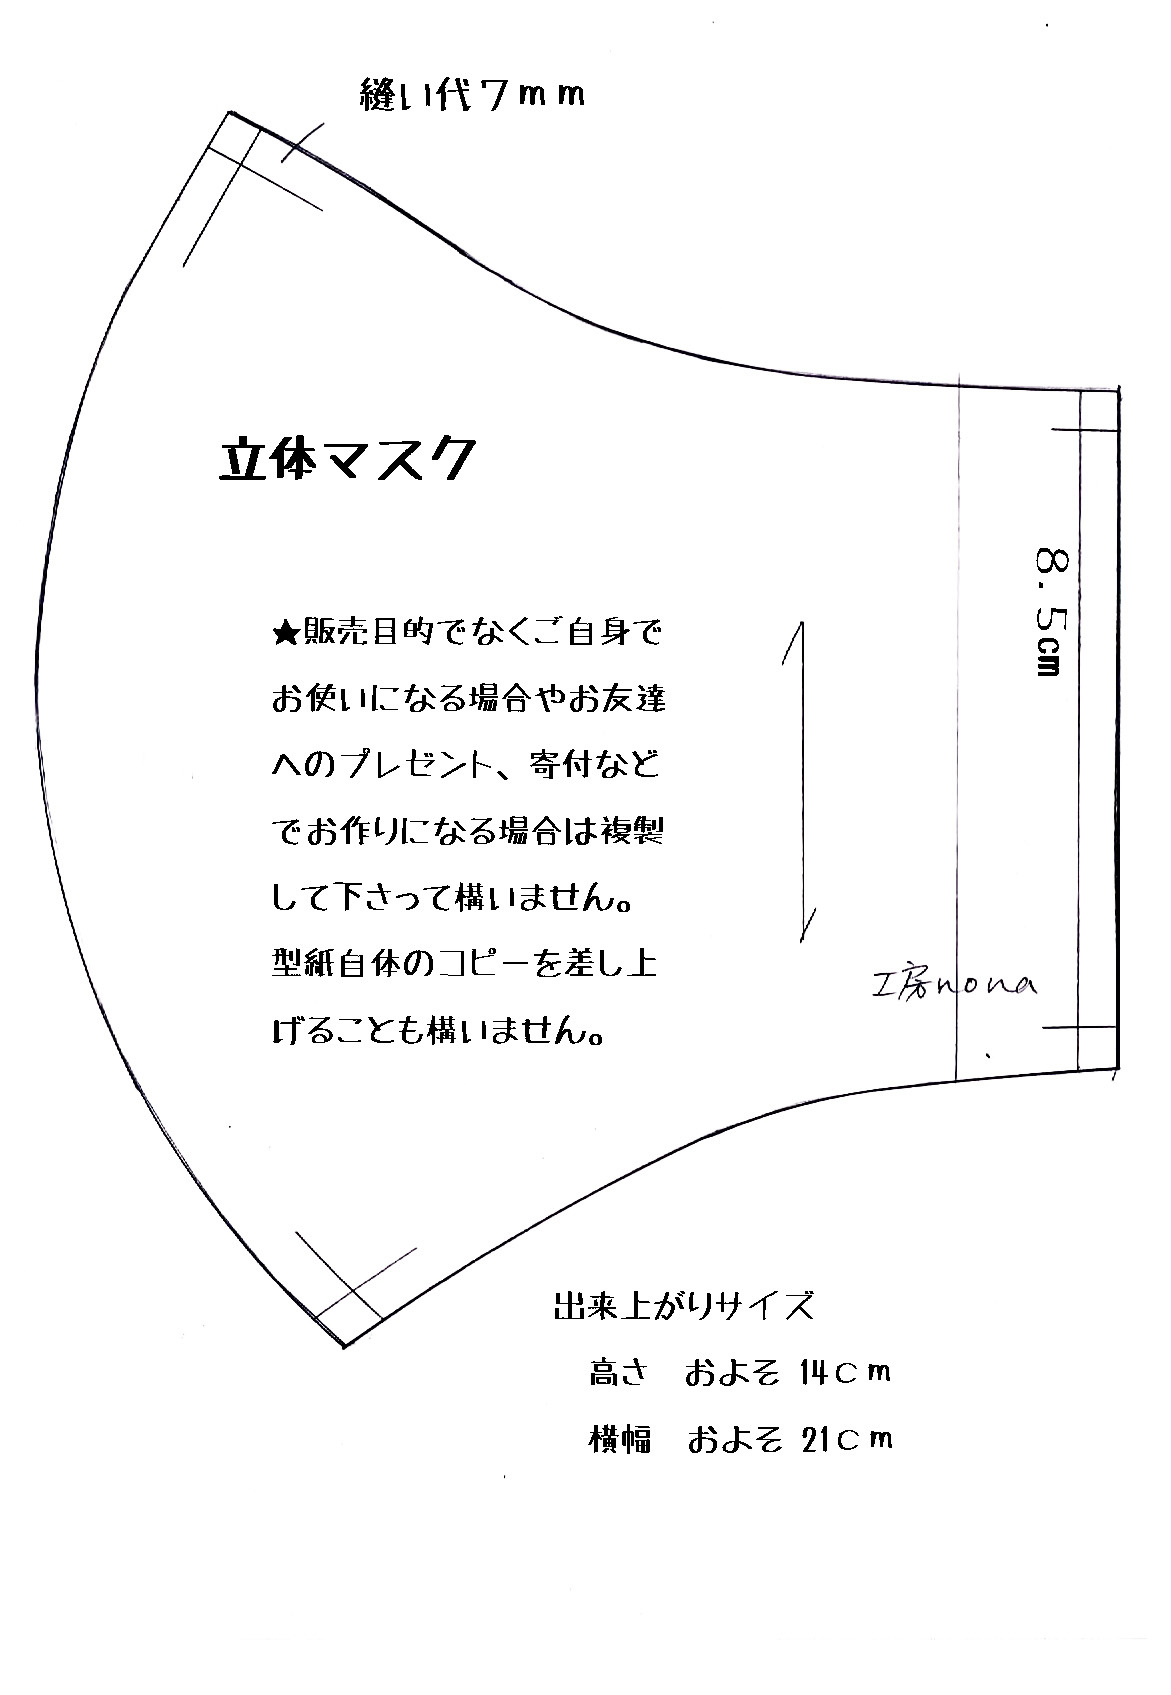 縫い代7mm
立体マスク
8.5cm
★販売目的でなくご自身で
お使いになる場合やお友達
へのプレゼント、寄付など
でお作りになる場合は複製
して下さって構いません。
型紙自体のコピーを差し上
げることも構いません。
工房nona
出来上がりサイズ
高さ　およそ 14cm
横幅　およそ 21cm